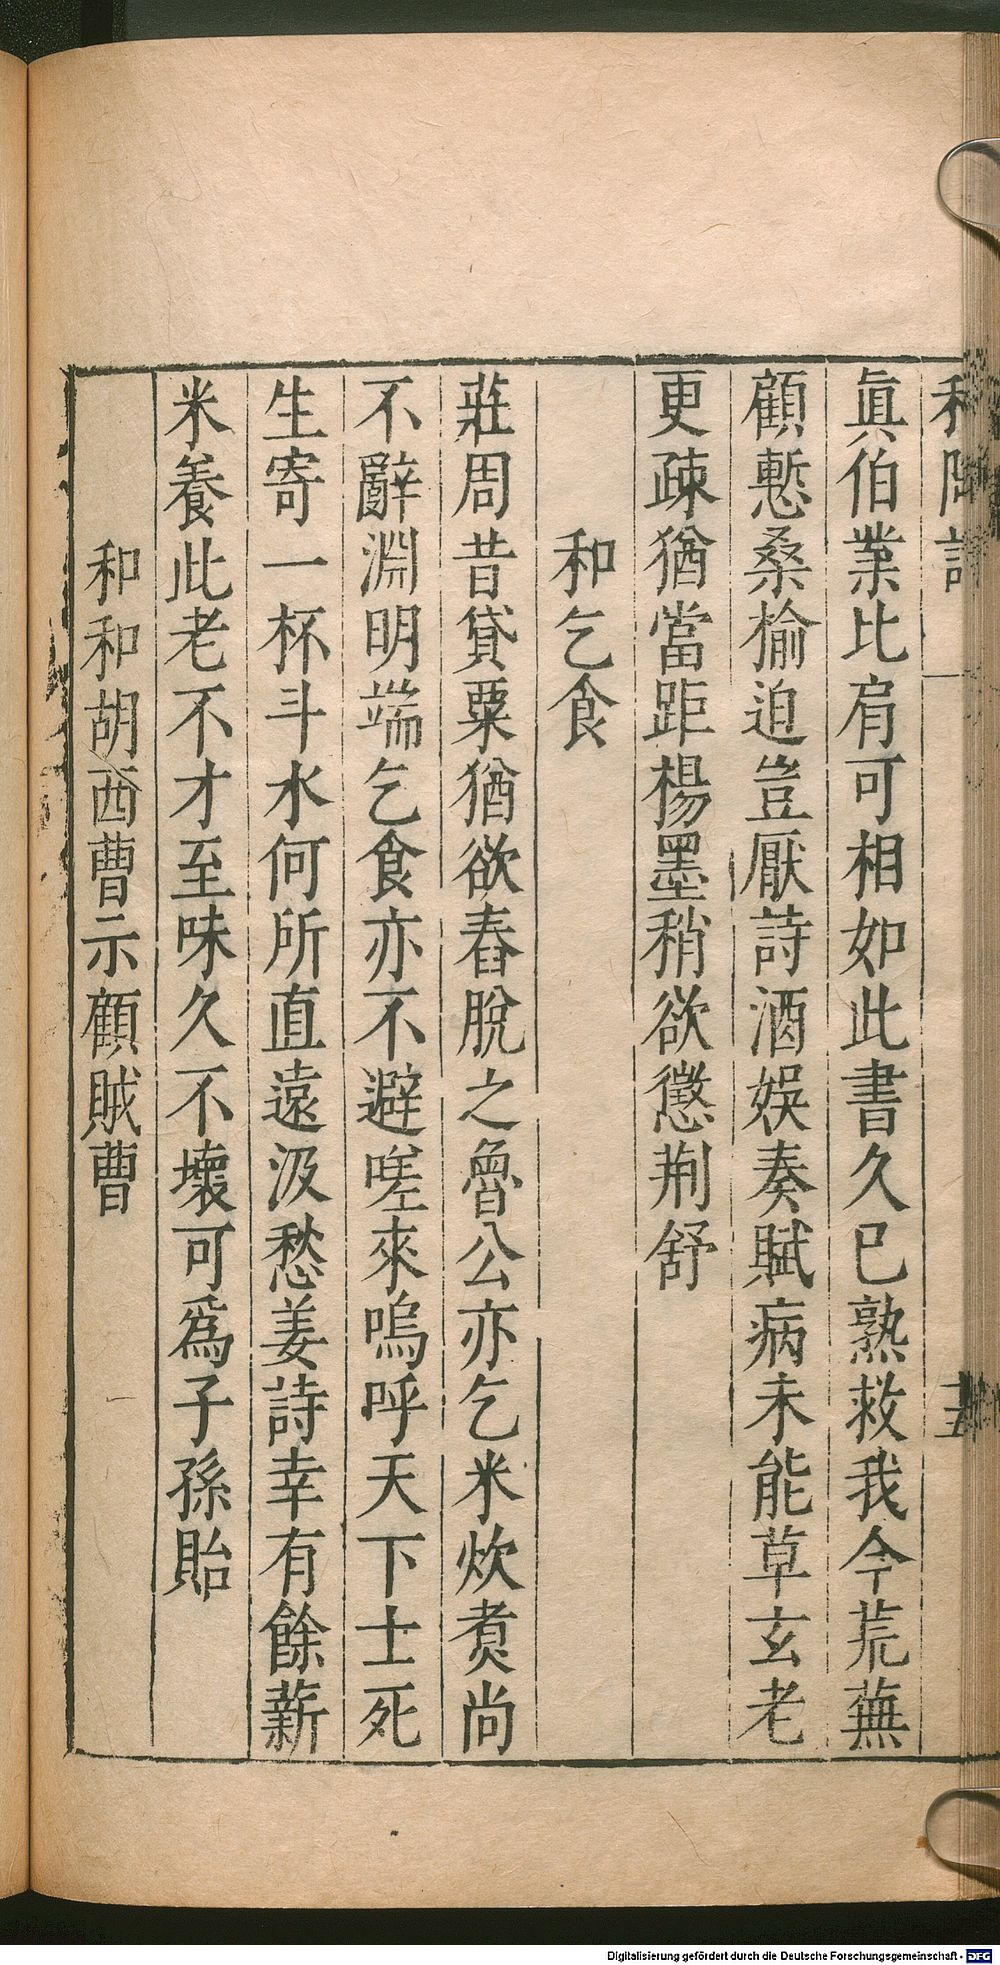 和陶詩 十五
眞伯業比肩可相如此書久已熟救我今荒蕪
顧慙桑榆迫豈厭詩酒娛奏賦病未能草玄老
更疎猶當距楊墨稍欲懲荆舒
和乞食
莊周昔貸粟猶欲舂脫之魯公亦乞米炊煮尚
不辭淵明端乞食亦不避嗟來嗚呼天下士死
生寄一杯斗水何所直遠汲愁姜詩幸有餘薪
米養此老不才至味久不壞可爲子孫貽
和和胡西曹示顧賊曹
Digitalisierung gefördert durch die Deutsche Forschungsgemeinschaft - DFG